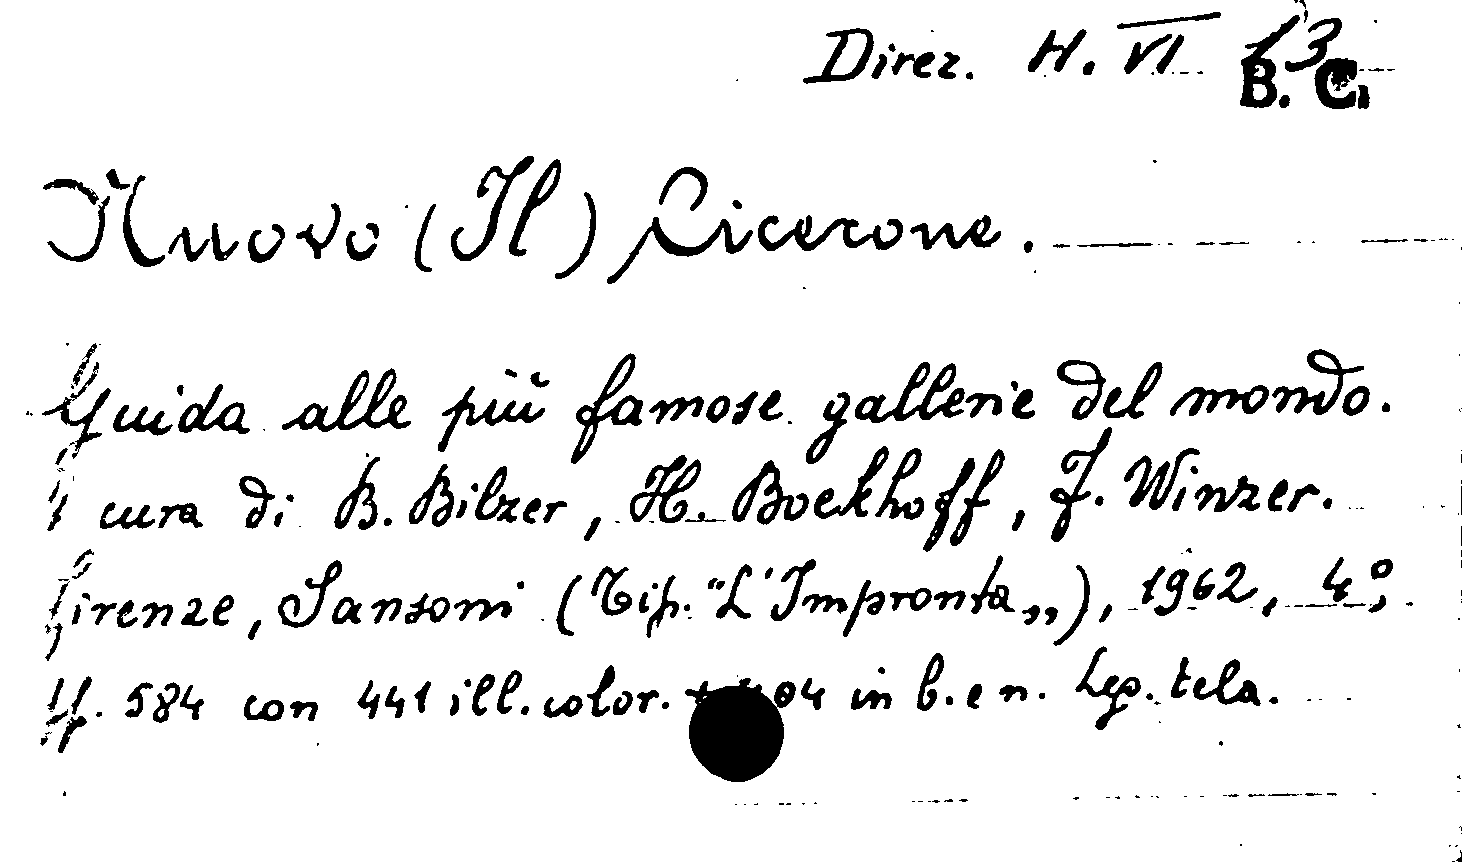 Direz. H. VI 13
B. C.
Nuovo (Il) Cicerone.
Guida alle più famose gallerie del mondo.
A cura di B. Bilzer, H. Boekhoff, F. Winzer.
Firenze, Sansoni (Tip. "L'Impronta„), 1962, 4°,
pp. 584 con 441 ill. color. in b. e n. Leg. tela.